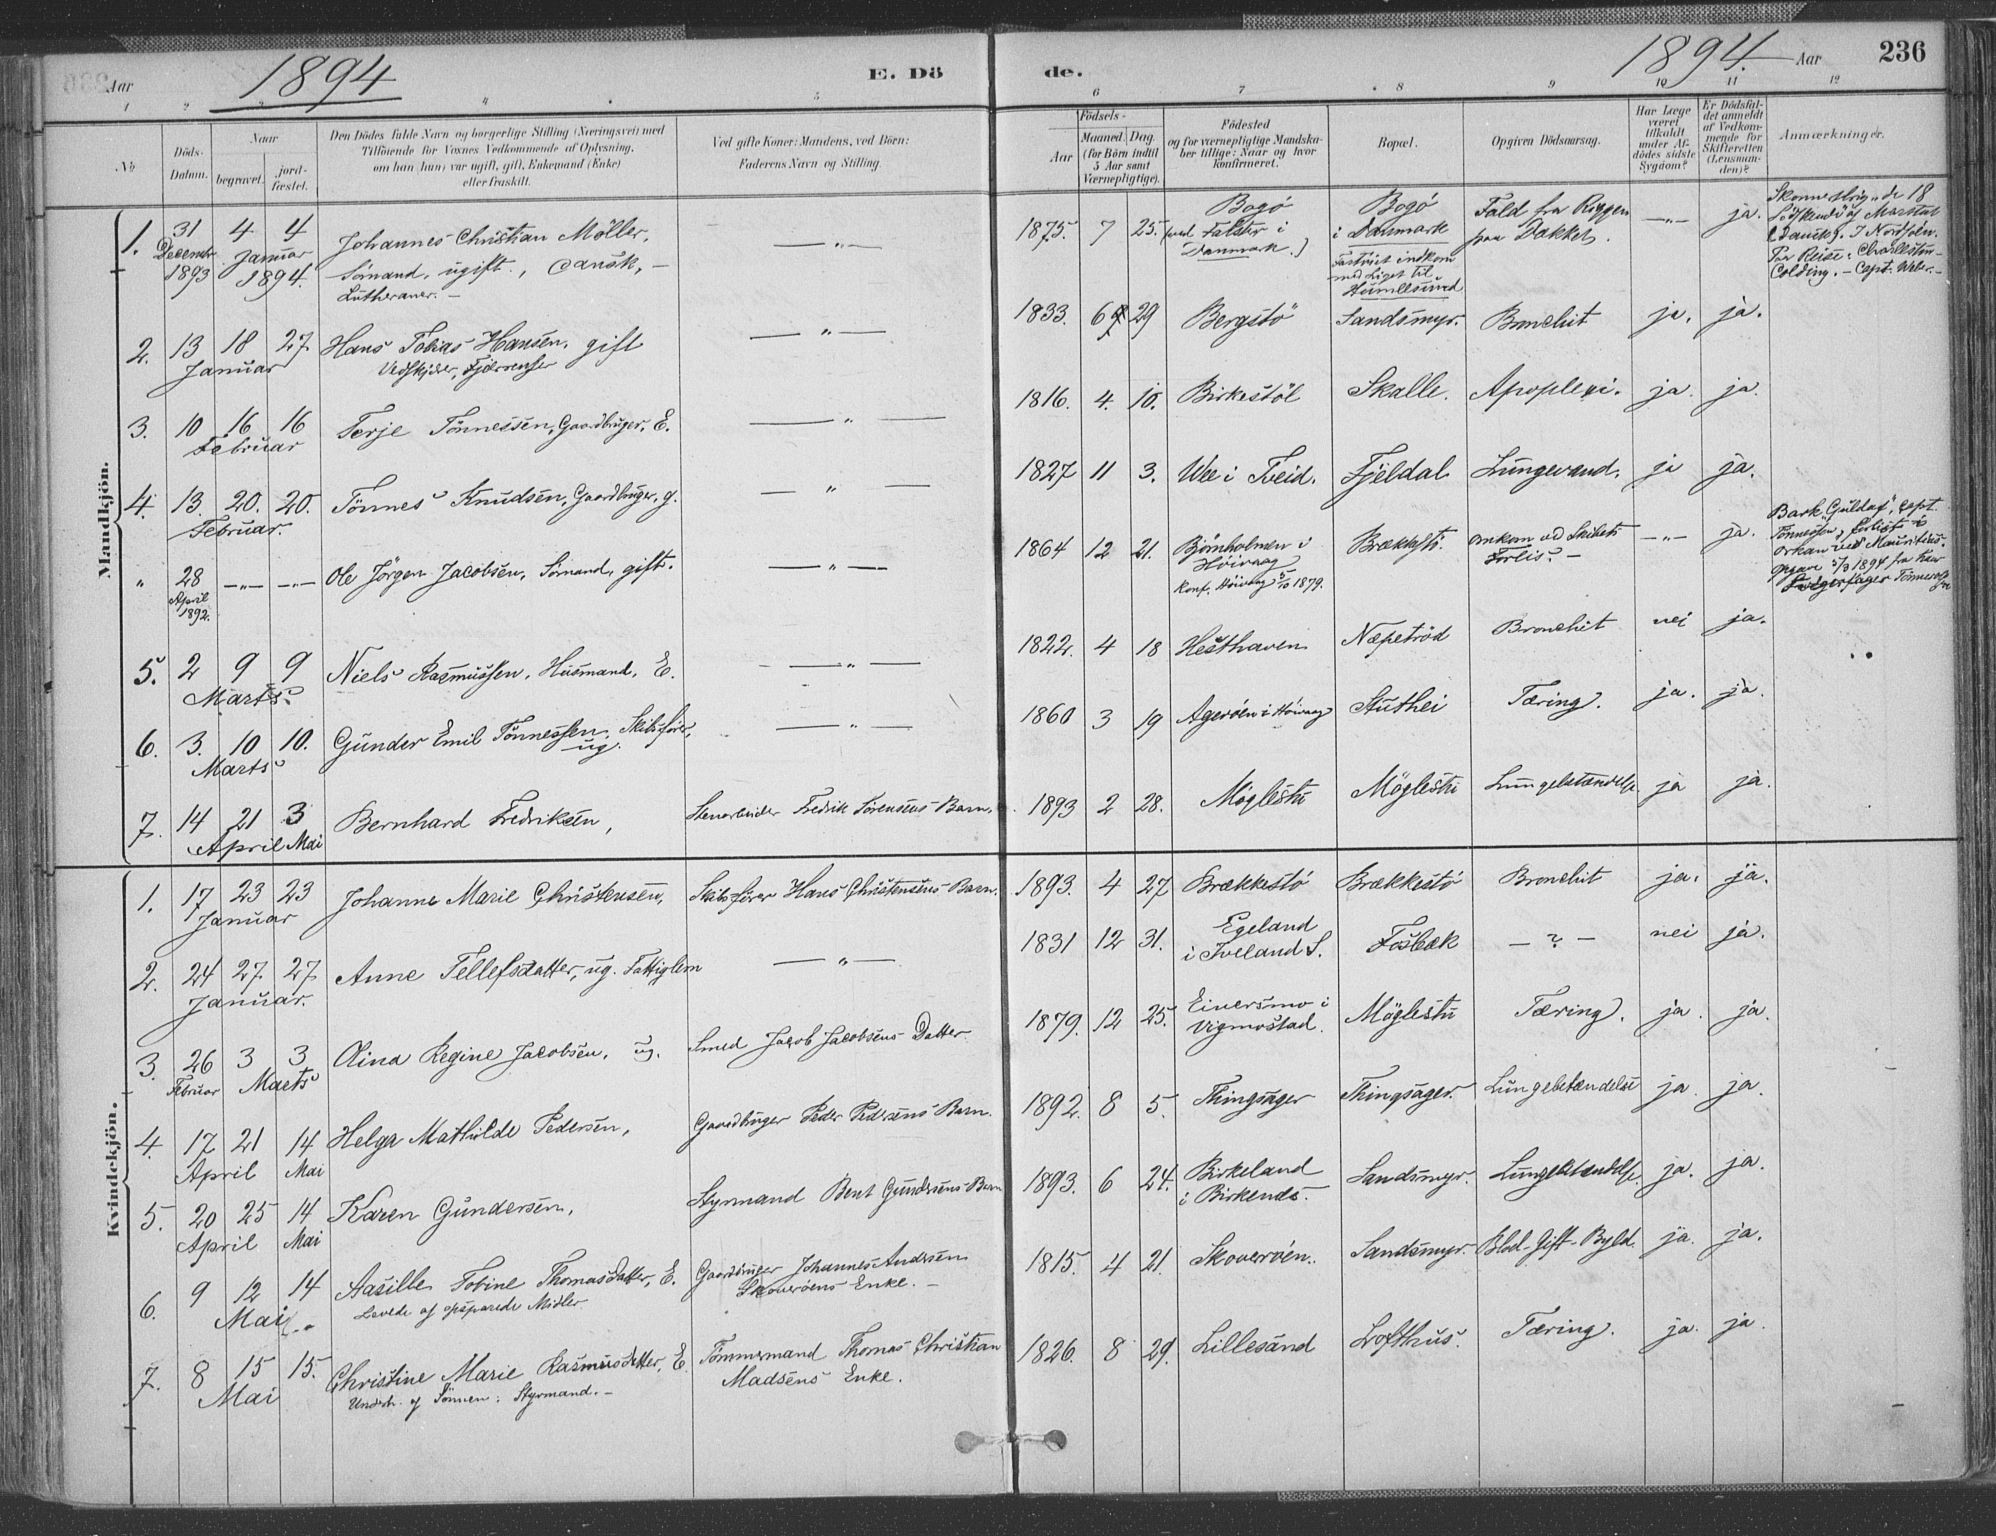 Aar 1894 E. Dö
de. 1894. Aar 236
1 2 3 4 5
6 7 8 9 10 11 12
No
Döds-Datum.
Naar
begravet.
jord-fæstet.
Den Dödes fulde Navn og borgerlige Stilling (Næringsvei) med
Tilföiende for Voxnes Vedkommende af Oplysning,
om han (hun) var ugift, gift, Enkemand (Enke)
eller fraskilt.
Ved gifte Koner: Mandens, ved Börn:
Faderens Navn og Stilling.
Födsels-
Aar
Maaned. Dag.
(for Börn indtil
5 Aar samt
Værnepligtige).
Födested
og for værnepligtige Mandska-
ber tillige: Naar og hvor
konfirmeret.
Bopæl.
Opgiven Dödsaarsag.
Har Læge
været
tilkaldt
under Af-
dödes sidste
Sygdom?
Er Dödsfal-
det anmeldt
af Vedkom-
mende for
Skifteretten
(Lensman-
den)?
Anmærkninger.
Mandkjön.
1. 31 December 1893 4 4 Januar 1894. Johannes Christian Möller,
Sömand, ugift., Dansk, –
Lutheraner. –
— " —
1875. 7 25. Bogö
(ved Falster i
Danmark.)
Bogö
i Danmark
indkom
med Liget til
Humlesund
Fald fra Riggen
paa Dækket.
— " — ja.
2. 13 18 27 Januar Hans Tobias Hansen, gift
— " — 1833. 6 29 Bergstö Sandsmyr. Bronchit ja. ja.
3. 10 16 16 Februar Terje Tönnessen, Gaardbruger, E.
— " — 1816. 4. 10. Birkestöl Skalle. Apoplexi. ja. ja.
4. 13. 20. 20. Februar. Tönnes Knudsen, Gaardbruger, g.
— " — 1827 11 3. Vee i Tveid. Fjeldal Lungevand. ja ja.
" 28 April 1892. — " — — " — Ole Jörgen Jacobsen, Sömand, gift.
— " — 1864 12 21. Björnholmen i
Höivaag
Konf. Höivaag 5/10 1879.
Brækkestö. omkom ved Skibets
Forlis. –
— " — ja. Bark "Guldaf", Capt.
Tönnesen, forlist i
orkan ved Mauritius.
5. 2 9 9 Marts Niels Rasmussen, Husmand, E.
— " — 1822. 4 18 Hesthaven Næpetröd Bronchit nei ja.
6. 3. 10 10. Marts Gunder Emil Tönnessen, Skibsförer,
ug.
— " — 1860 3 19 Ageröen i Höivaag Stuthei Tæring. ja. ja.
7. 14 21 April 3 Mai Bernhard Fredriksen,
Stenarbeider Fredrik Sörensens Barn.
1893 2 28. Möglestu Möglestu Lungebetændelse ja ja.
Kvindekjön.
1. 17 23 23 Januar Johanne Marie Christensen,
Skibsförer Hans Christensens Barn.
1893. 4 27 Brækkestö Brækkestö Bronchit ja. ja.
2. 24 27 27 Januar. Anne Tellefsdatter, ug. Fattiglem
— " — 1831 12 31. Egeland
i Iveland S.
Fosbæk – ? – nei ja.
3. 26 Februar 3 3 Marts Olina Regine Jacobsen, ug.
Smed Jacob Jacobsens Datter
1879. 12 25. Eiversmo i
Vigmostad.
Möglestu Tæring. ja. ja.
4. 17 21 April 14 Mai Helga Mathilde Pedersen,
Gaardbruger Peder Pedersens Barn.
1892. 8 5. Thingsager Thingsager. Lungebetændelse ja. ja.
5. 20 25 April 14 Mai Karen Gundersen,
Styrmand Bent Gundersens Barn
1893. 6 24. Birkeland
i Birkenæs.
Sandsmyr. Lungebetændelse ja. ja.
6. 9 12 14 Mai Aasille Tobine Thomasdatter, E.
Levede af opsparede Midler.
Gaardbruger Johannes Andersen
Skoveröens Enke. –
1815. 4 21. Skoveröen. Sandsmyr. Blod-Gift-Byld. ja. ja.
7. 8 15 15. Mai Christine Marie Rasmusdatter, E
Underh. af Sönnen: Styrmand. –
Tömmermand Thomas Christian
Madsens Enke.
1826. 8 29. Lillesand Lofthus. Tæring. ja. ja